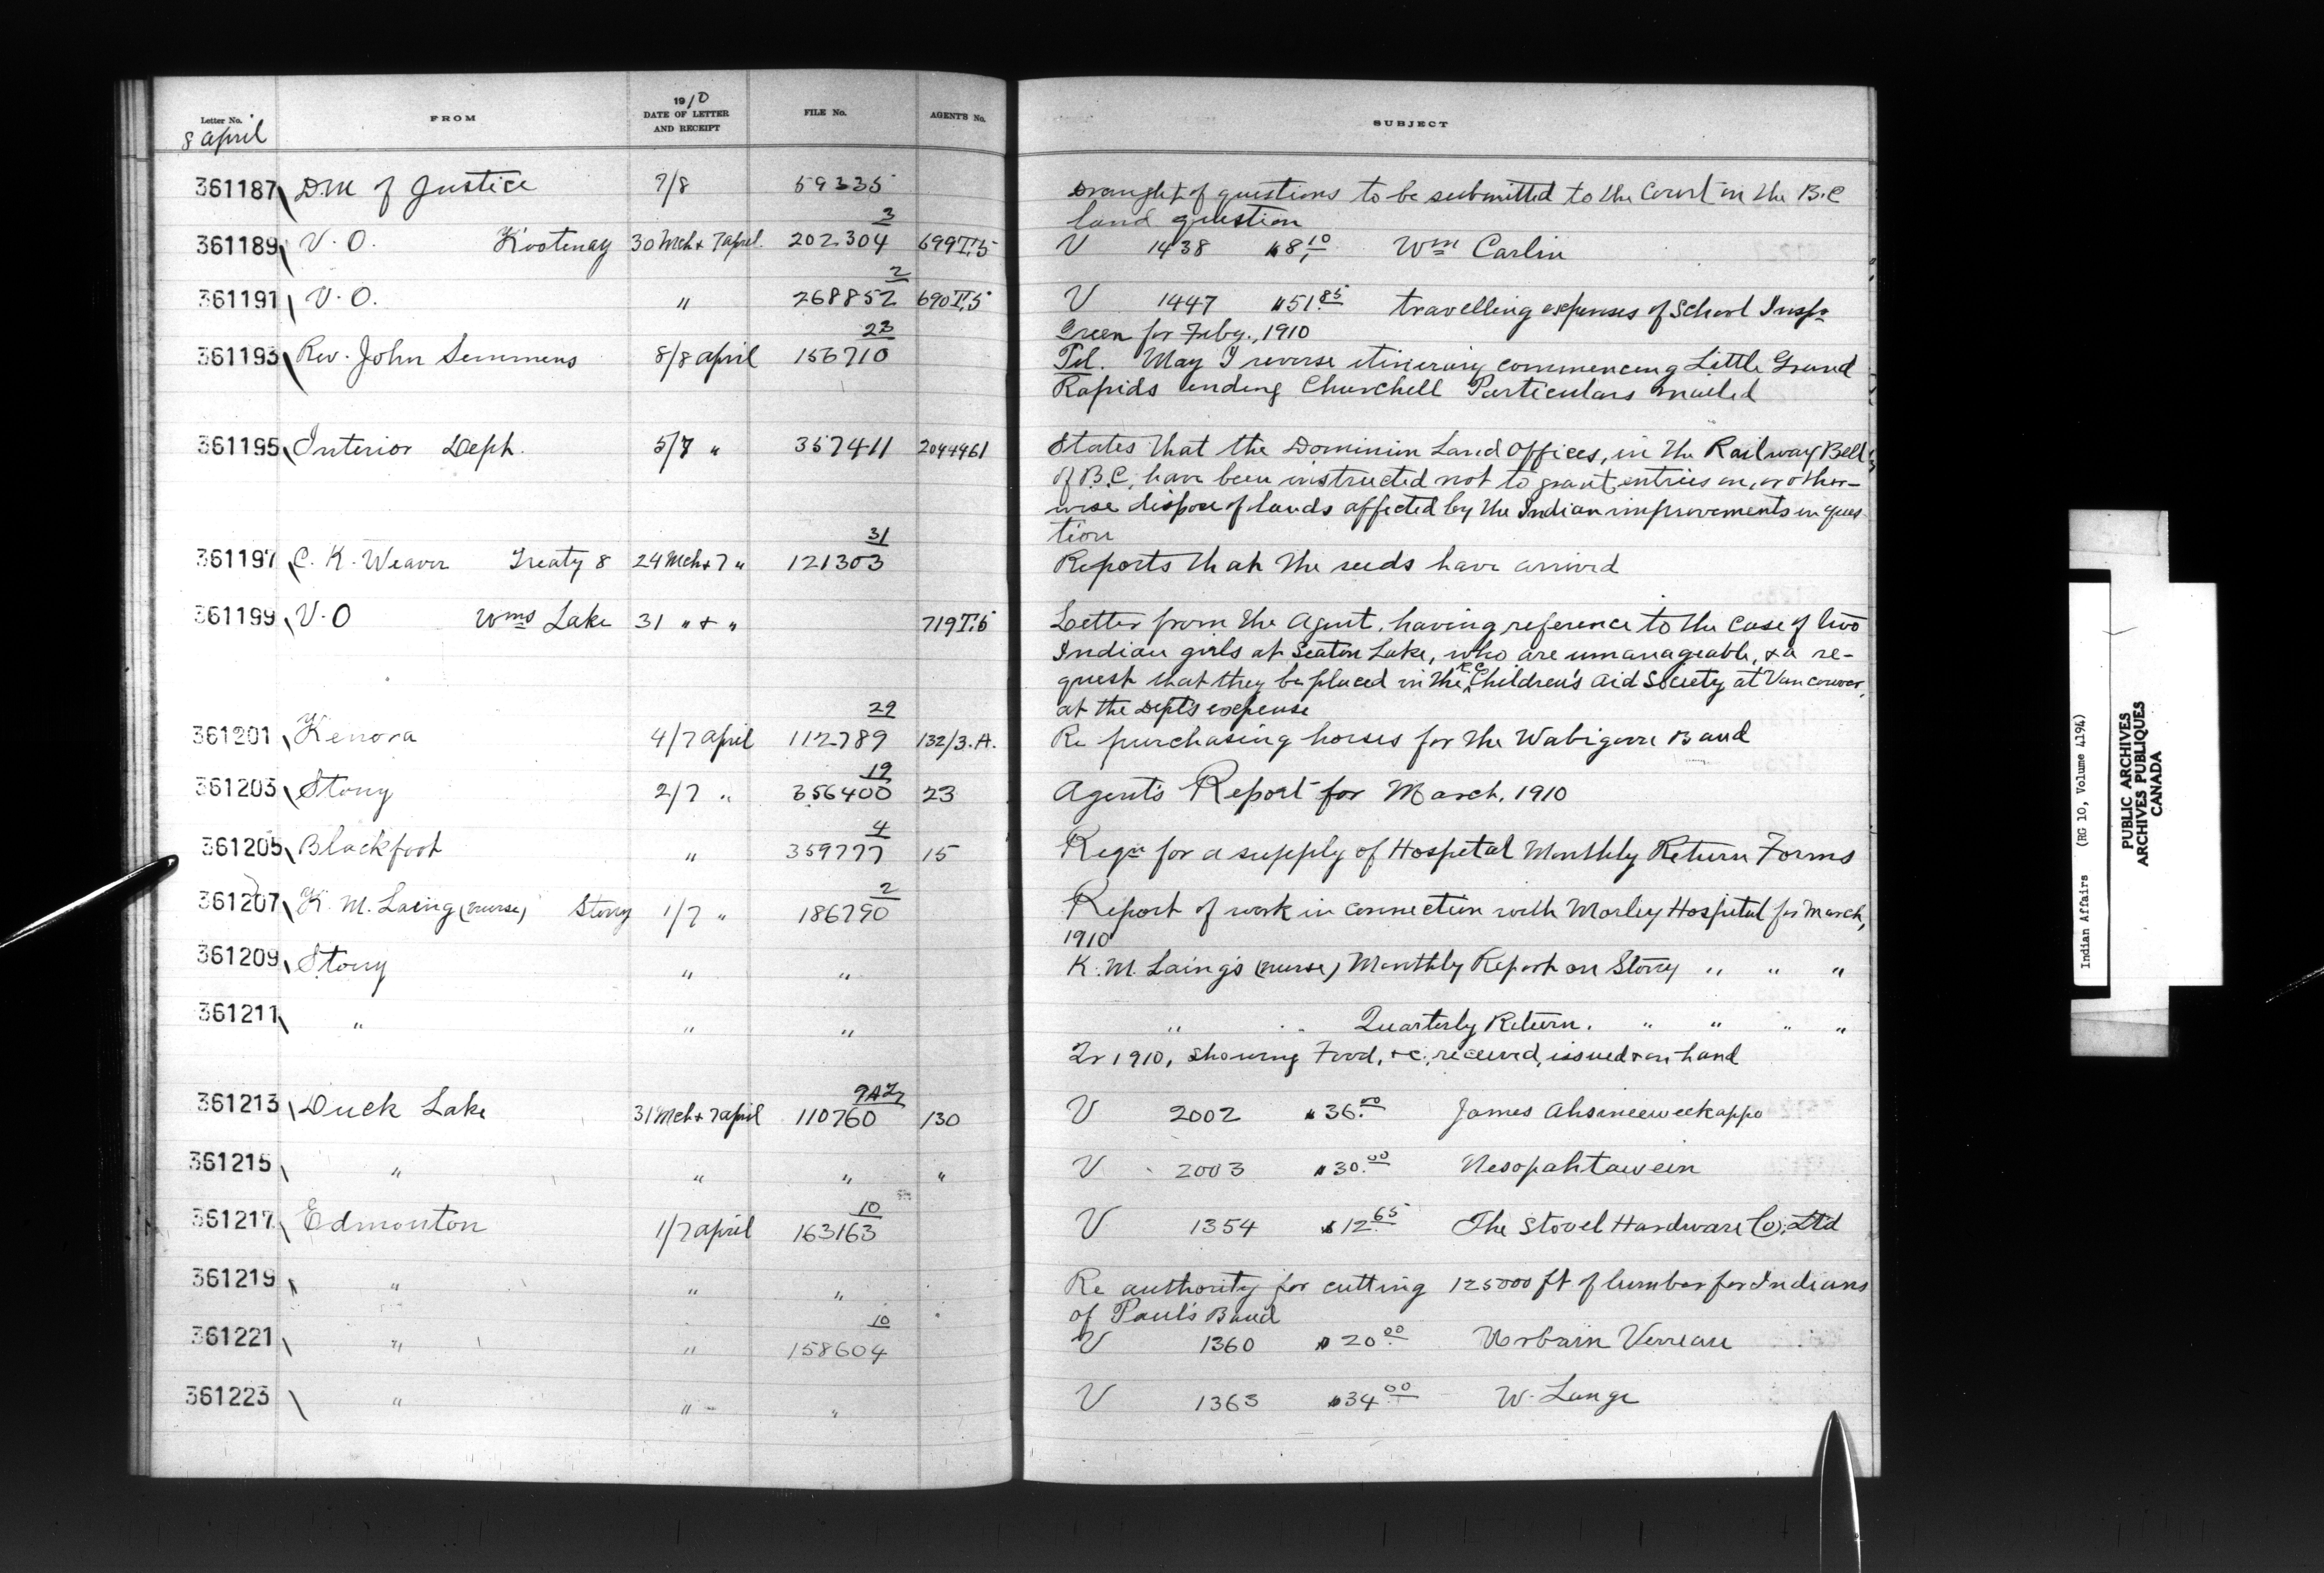 1910
Letter No. FROM DATE OF LETTER AND RECEIPT FILE No. AGENTS No. SUBJECT
8 April
361187 D.M of Justice 7/8 59335 Draught of questions to be submitted to the Court in the B.C
land question
3
361189 V.O. Kootenay 30 Mch & 7 April 202304 699 T.5 V 1438 $8.10 Wm Carlin
2
361191 V.O. " 268852 690 T.5 V 1447 $51.85 travelling expenses of School Inspr
Green for Feby., 1910
23
361193 Rev. John Semmens 8/8 April 156710 Tel. May I reverse itinerary commencing Little Grand
Rapids ending Churchill Particulars mailed
361195 Interior Dept. 5/7 " 357411 2044961 States that the Dominion Land Offices, in the Railway Belt
of B.C, have been instructed not to grant entries on, or other-
wise dispose of lands affected by the Indian improvements in ques
tion
31
361197 C. K. Weaver Treaty 8 24 Mch & 7 " 121303 Reports that the seeds have arrived
361199 V.O Wms Lake 31 " & " 719 T.5 Letter from the Agent, having reference to the case of two
Indian girls at Seaton Lake, who are unmanageable, & a re-
quest that they be placed in the R.C. Children's Aid Society at Vancouver,
at the Dept's expense
29
361201 Kenora 4/7 April 112789 132/3.A. Re purchasing horses for the Wabigoon Band
19
361203 Stony 2/7 " 356400 23 Agent's Report for March, 1910
4
361205 Blackfoot " 359777 15 Reqn for a supply of Hospital Monthly Return Forms
2
361207 K. M. Laing (nurse) Stony 1/7 " 186790 Report of work in connection with Morley Hospital for March,
1910
361209 Stony " " K. M. Laing's (nurse) Monthly Report on Stony " " "
361211 " " " " " Quarterly Return. " " " "
Qr 1910, showing Food, &c, received, issued & on hand
361213 Duck Lake 31 Mch & 7 April 110760 130 V 2002 $36.00 James Ahsineeweekappo
361215 " " " " V 2003 $30.00 Nesopahtawein
10
361217 Edmonton 1/7 April 163163 V 1354 $12.65 The Stovel Hardware Co, Ltd
361219 " " " Re authority for cutting 125000 ft of lumber for Indians
of Paul's Band
10
361221 " " 158604 V 1360 $20.00 Urbain Verreau
361223 " " " V 1363 $34.00 W. Lange
Indian Affairs (RG 10, Volume 4194)
PUBLIC ARCHIVES
ARCHIVES PUBLIQUES
CANADA